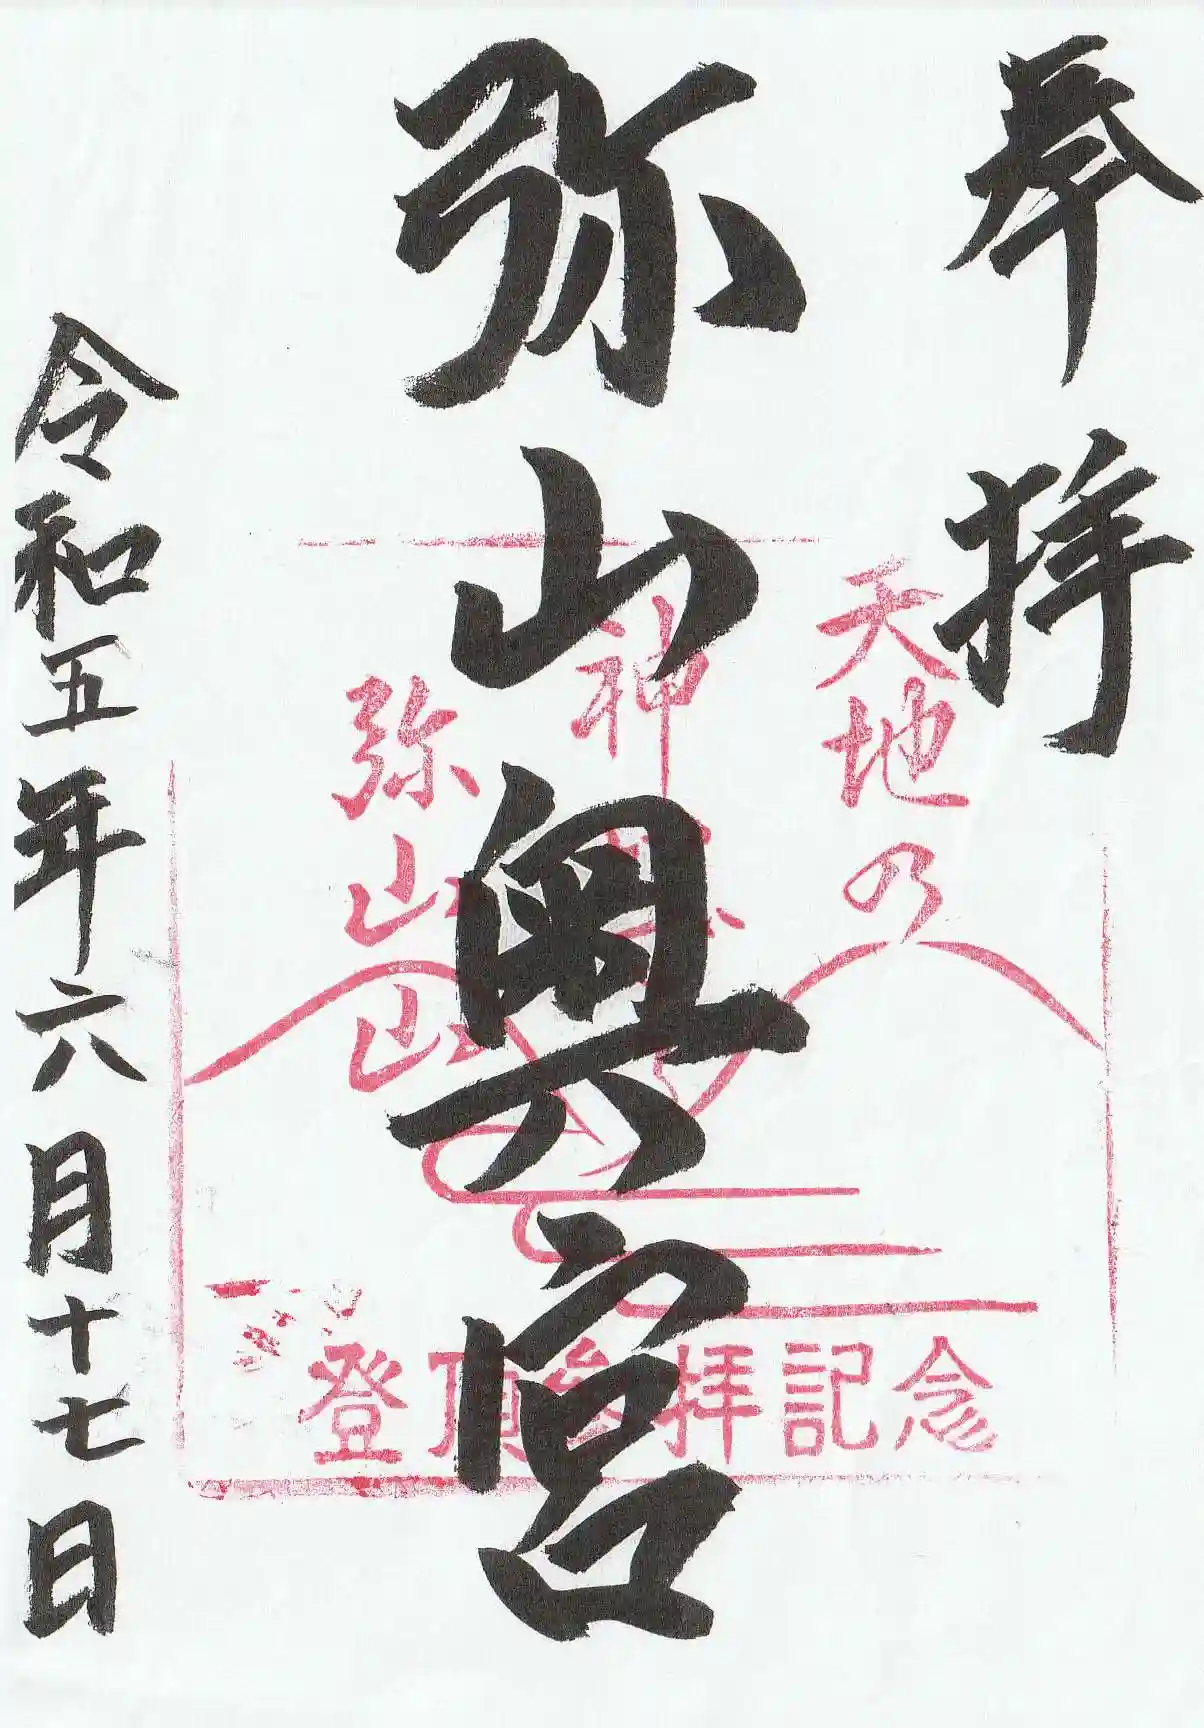 奉拝
弥山奥宮
令和五年六月十七日
天地乃
神
弥山山
登頂参拝記念